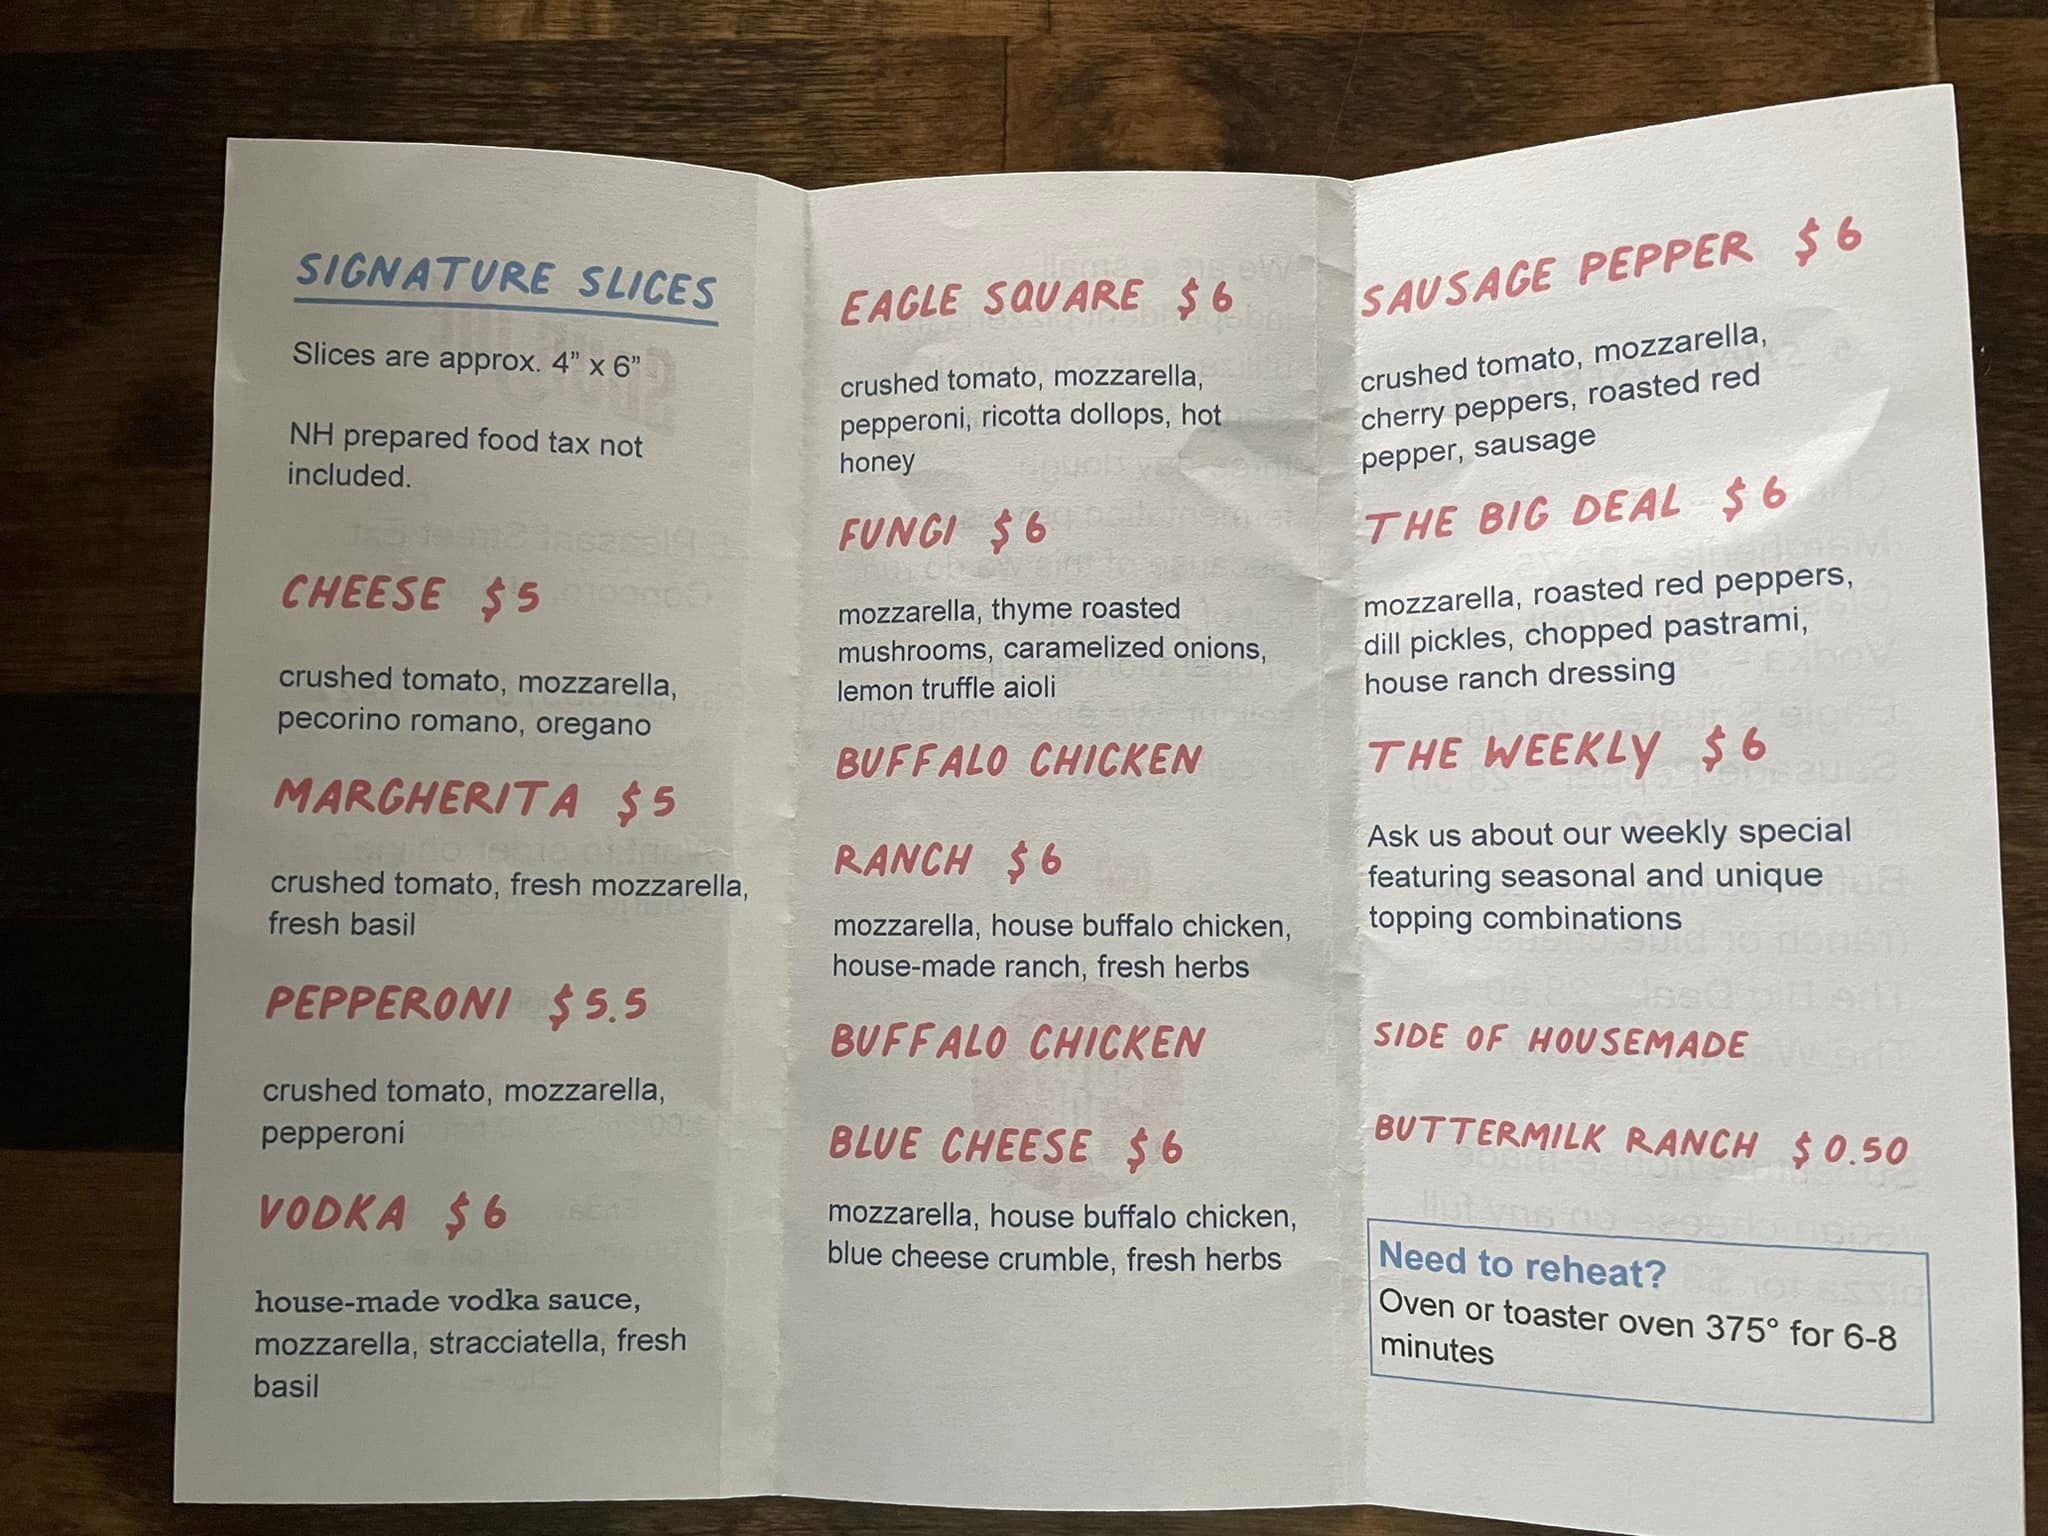 SIGNATURE SLICES
Slices are approx. 4” x 6”
NH prepared food tax not
included.
CHEESE $5
crushed tomato, mozzarella,
pecorino romano, oregano
MARGHERITA $5
crushed tomato, fresh mozzarella,
fresh basil
PEPPERONI $5.5
crushed tomato, mozzarella,
pepperoni
VODKA $6
house-made vodka sauce,
mozzarella, stracciatella, fresh
basil
EAGLE SQUARE $6
crushed tomato, mozzarella,
pepperoni, ricotta dollops, hot
honey
FUNGI $6
mozzarella, thyme roasted
mushrooms, caramelized onions,
lemon truffle aioli
BUFFALO CHICKEN
RANCH $6
mozzarella, house buffalo chicken,
house-made ranch, fresh herbs
BUFFALO CHICKEN
BLUE CHEESE $6
mozzarella, house buffalo chicken,
blue cheese crumble, fresh herbs
SAUSAGE PEPPER $6
crushed tomato, mozzarella,
cherry peppers, roasted red
pepper, sausage
THE BIG DEAL $6
mozzarella, roasted red peppers,
dill pickles, chopped pastrami,
house ranch dressing
THE WEEKLY $6
Ask us about our weekly special
featuring seasonal and unique
topping combinations
SIDE OF HOUSEMADE
BUTTERMILK RANCH $0.50
Need to reheat?
Oven or toaster oven 375° for 6-8
minutes